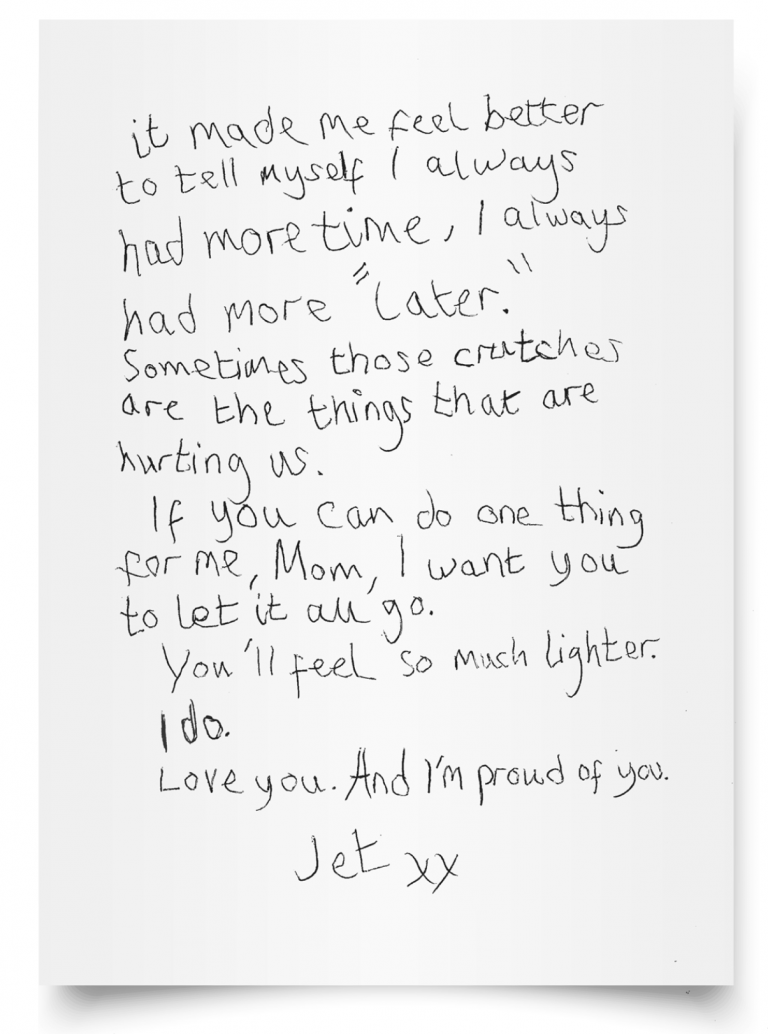 it made me feel better
to tell myself I always
had more time, I always
had more "later."
Sometimes those crutches
are the things that are
hurting us.
If you can do one thing
for me, Mom, I want you
to let it all go.
You'll feel so much lighter.
I do.
Love you. And I'm proud of you.
Jet xx